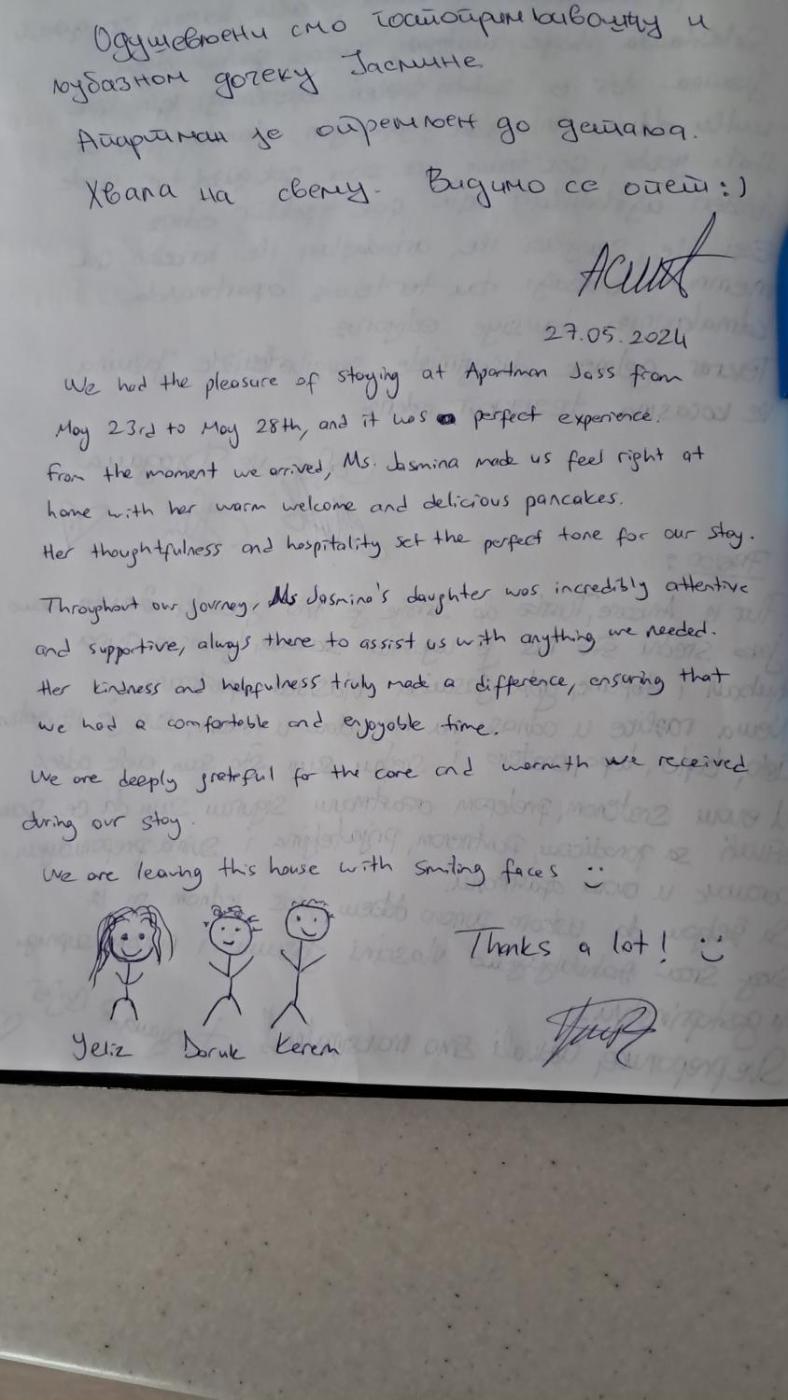 Одушевљени смо гостопримљивошћу и
љубазном дочеку Јасмине
Апартман је опремљен до детаља.
Хвала на свему. Видимо се опет :)
27.05.2024
We had the pleasure of staying at Apartman Jass from
May 23rd to May 28th, and it was a perfect experience.
from the moment we arrived, Ms. Jasmina made us feel right at
home with her warm welcome and delicious pancakes.
Her thoughtfulness and hospitality set the perfect tone for our stay.
Throughout our journey, Ms Jasmina's daughter was incredibly attentive
and supportive, always there to assist us with anything we needed.
Her kindness and helpfulness truly made a difference, ensuring that
we had a comfortable and enjoyable time.
We are deeply grateful for the care and warmth we received
during our stay.
We are leaving this house with smiling faces :)
Thanks a lot! :)
Yeliz Doruk Kerem